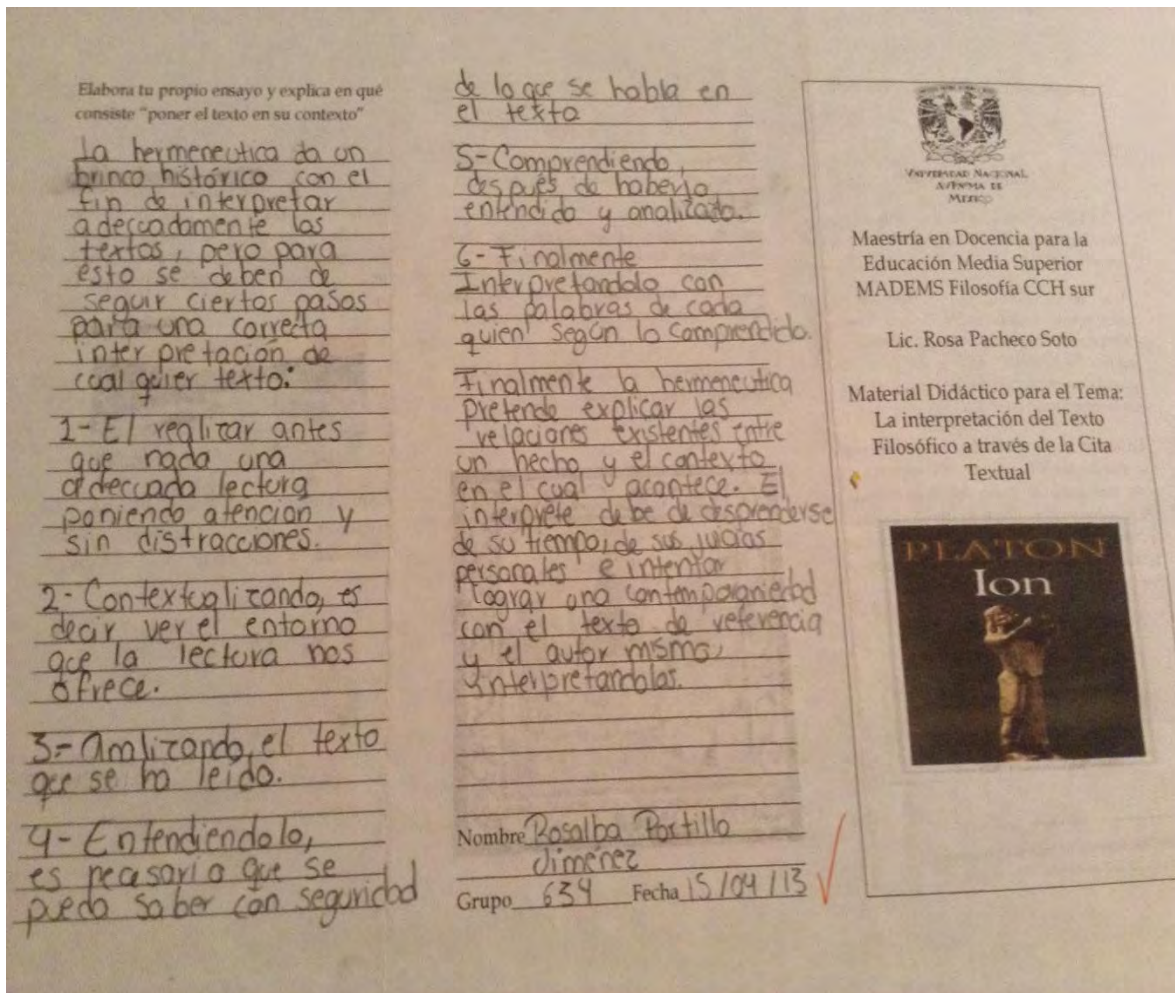 Elabora tu propio ensayo y explica en qué
consiste "poner el texto en su contexto"
La hermeneutica da un
brinco histórico con el
fin de interpretar
adecuadamente los
textos, pero para
esto se deben de
seguir ciertos pasos
para una correcta
interpretación de
cualquier texto:
1- El realizar antes
que nada una
adecuada lectura
poniendo atención y
sin distracciones.
2- Contextualizando, es
decir ver el entorno
que la lectura nos
ofrece.
3- Analizando el texto
que se ha leido.
4- Entendiendolo,
es necesario que se
pueda saber con seguridad
de lo que se habla en
el texto
5- Comprendiendo,
después de haberlo
entendido y analizado.
6- Finalmente
Interpretandolo con
las palabras de cada
quien según lo comprendido.
Finalmente la hermeneutica
pretende explicar las
relaciones existentes entre
un hecho y el contexto
en el cual acontece. El
interprete debe de desprenderse
de su tiempo, de sus juicios
personales e intentar
lograr una contemporaniedad
con el texto de referencia
y el autor mismo,
interpretandolas.
Nombre Rosalba Portillo
Jiménez
Grupo 634 Fecha 15/04/13
UNIVERSIDAD NACIONAL
AUTÓNOMA DE
MÉXICO
Maestría en Docencia para la
Educación Media Superior
MADEMS Filosofía CCH sur
Lic. Rosa Pacheco Soto
Material Didáctico para el Tema:
La interpretación del Texto
Filosófico a través de la Cita
Textual
PLATON
Ion